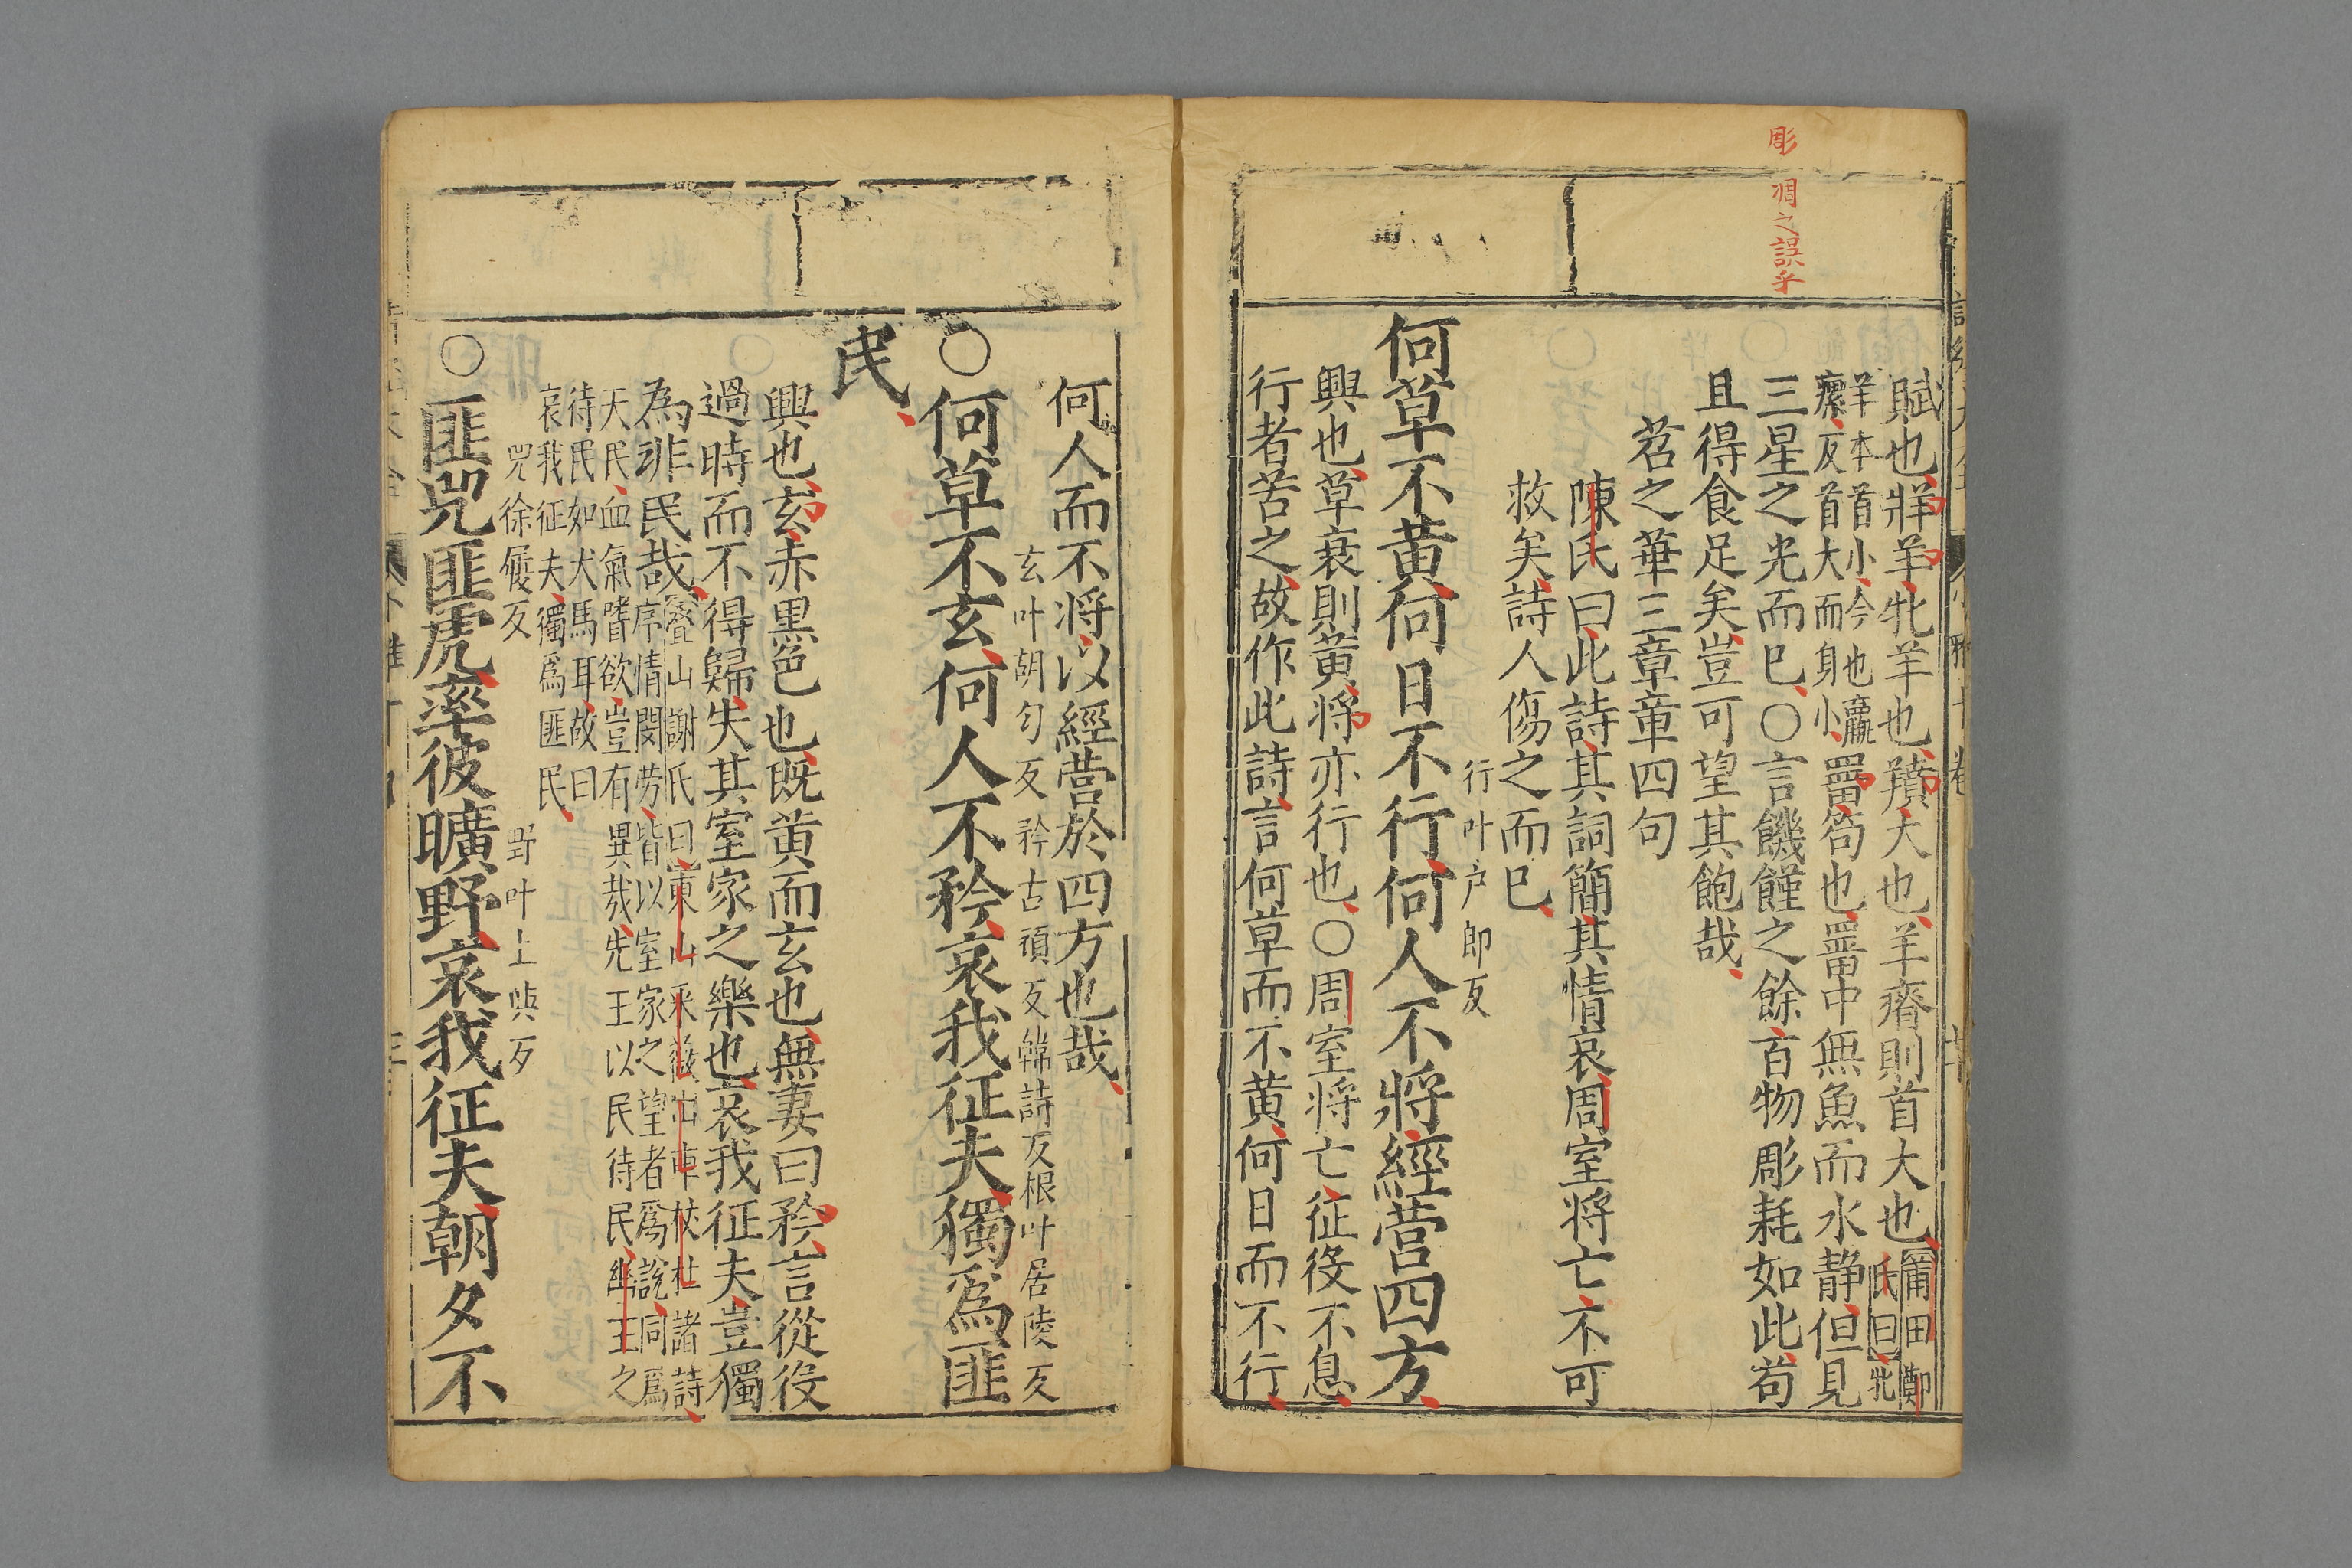 彫 凋之誤乎
賦也牂羊牝羊也羵大也羊瘠則首大也莆田鄭氏曰牝
羊本首小今也羸瘰反首大而身小罶笱也罶中無魚而水静但見
三星之光而已〇言饑饉之餘百物彫耗如此苟
且得食足矣豈可望其飽哉
苕之華三章章四句
陳氏曰此詩其詞簡其情哀周室將亡不可
救矣詩人傷之而已
行叶户郎反
何草不黄何日不行何人不將經營四方
興也草衰則黄將亦行也〇周室將亡征役不息
行者苦之故作此詩言何草而不黄何日而不行
何人而不將以經營於四方也哉
玄叶胡勻反矜古頑反韓詩反根叶居陵反
〇何草不玄何人不矜哀我征夫獨爲匪
民
興也玄赤黒色也既黄而玄也無妻曰矜言從役
過時而不得歸失其室家之樂也哀我征夫豈獨
為非民哉疊山謝氏曰東山采薇出車杕杜諸詩
序情閔劳皆以室家之望者爲說同爲
天民血氣嗜欲豈有異哉先王以民待民幽王之
待民如犬馬耳故曰
哀我征夫獨爲匪民
兕徐履反 野叶上與反
〇匪兕匪虎率彼曠野哀我征夫朝夕不